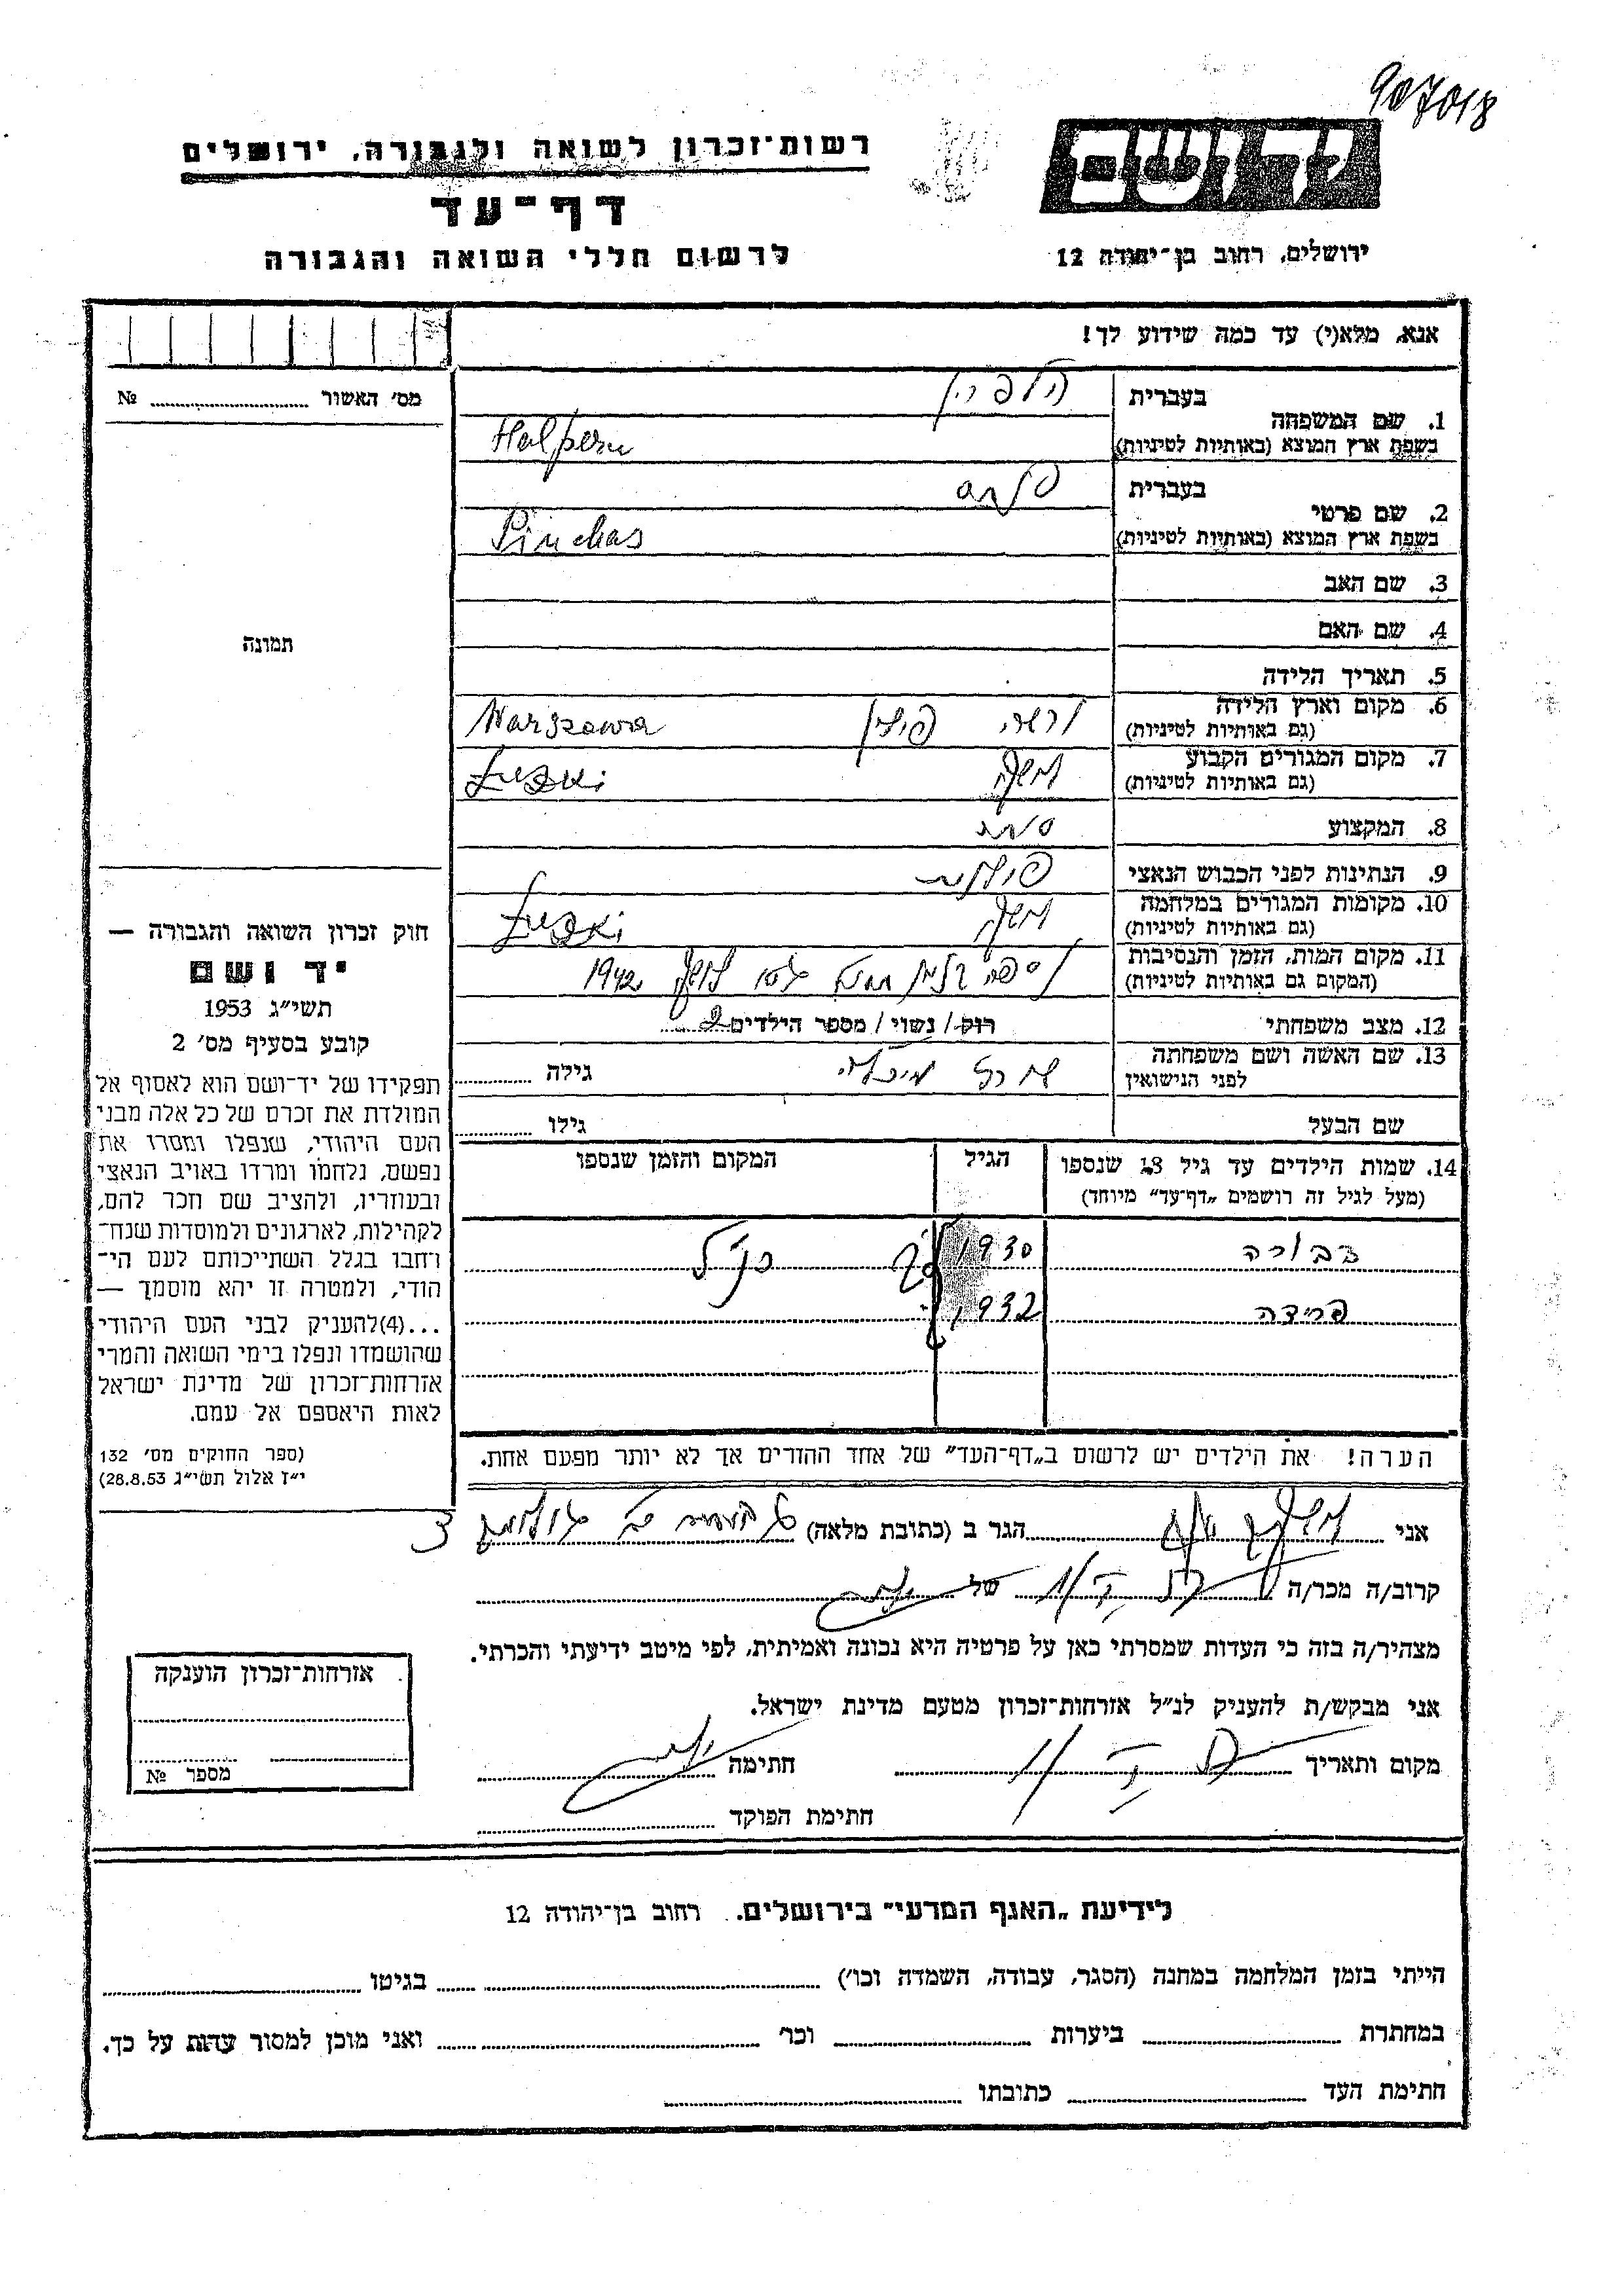 907018
יד ושם
רשות־זכרון לשואה ולגבורה, ירושלים
דף־עד
לרשום חללי השואה והגבורה
ירושלים, רחוב בן־יהודה 12
אנא, מלא(י) עד כמה שידוע לך!
מס׳ האשור № 
1. שם המשפחה
בעברית
הלפרין
בשפת ארץ המוצא (באותיות לטיניות)
Halpern
2. שם פרטי
בעברית
פנחס
בשפת ארץ המוצא (באותיות לטיניות)
Pinchas
3. שם האב
4. שם האם
5. תאריך הלידה
6. מקום וארץ הלידה
(גם באותיות לטיניות)
ורשה פולין Warszawa
7. מקום המגורים הקבוע
(גם באותיות לטיניות)
8. המקצוע
סוחר
9. הנתינות לפני הכבוש הנאצי
פולנית
10. מקומות המגורים במלחמה
(גם באותיות לטיניות)
11. מקום המות, הזמן והנסיבות
(המקום גם באותיות לטיניות)
נספה 1942
12. מצב משפחתי
רוק / נשוי / מספר הילדים 2
13. שם האשה ושם משפחתה
לפני הנישואין
גילה
שם הבעל
גילו
14. שמות הילדים עד גיל 18 שנספו
(מעל לגיל זה רושמים „דף־עד” מיוחד)
הגיל
המקום והזמן שנספו
דבורה 1930 כנ״ל
פרידה 1932
הערה! את הילדים יש לרשום ב„דף־העד” של אחד ההורים אך לא יותר מפעם אחת.
תמונה
חוק זכרון השואה והגבורה —
יד ושם
תשי״ג 1953
קובע בסעיף מס׳ 2
תפקידו של יד־ושם הוא לאסוף אל
המולדת את זכרם של כל אלה מבני
העם היהודי, שנפלו ומסרו את
נפשם, נלחמו ומרדו באויב הנאצי
ובעוזריו, ולהציב שם וזכר להם,
לקהילות, לארגונים ולמוסדות שנח־
רבו בגלל השתייכותם לעם הי־
הודי, ולמטרה זו יהא מוסמך —
...(4)להעניק לבני העם היהודי
שהושמדו ונפלו בימי השואה והמרי
אזרחות־זכרון של מדינת ישראל
לאות היאספם אל עמם.
(ספר החוקים מס׳ 132
י״ז אלול תשי״ג 28.8.53)
אני הגר ב (כתובת מלאה)
קרוב/ה מכר/ה של
מצהיר/ה בזה כי העדות שמסרתי כאן על פרטיה היא נכונה ואמיתית, לפי מיטב ידיעתי והכרתי.
אני מבקש/ת להעניק לנ״ל אזרחות־זכרון מטעם מדינת ישראל.
מקום ותאריך חתימה
חתימת הפוקד
אזרחות־זכרון הוענקה
מספר №
לידיעת „האגף המדעי” בירושלים. רחוב בן־יהודה 12
הייתי בזמן המלחמה במחנה (הסגר, עבודה, השמדה וכו׳) בגיטו
במחתרת ביערות וכו׳ ואני מוכן למסור עדות על כך.
חתימת העד כתובתו